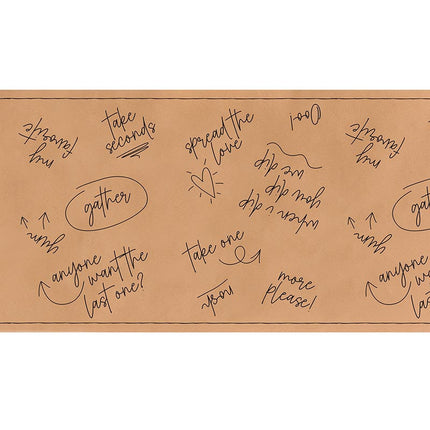 my
favorite
take
seconds
spread the
love
Ooo!
when i dip
you dip
we dip
gather
yum
anyone
want the
last one?
take one
nosh
more
please!
my
favorite
yum
anyone